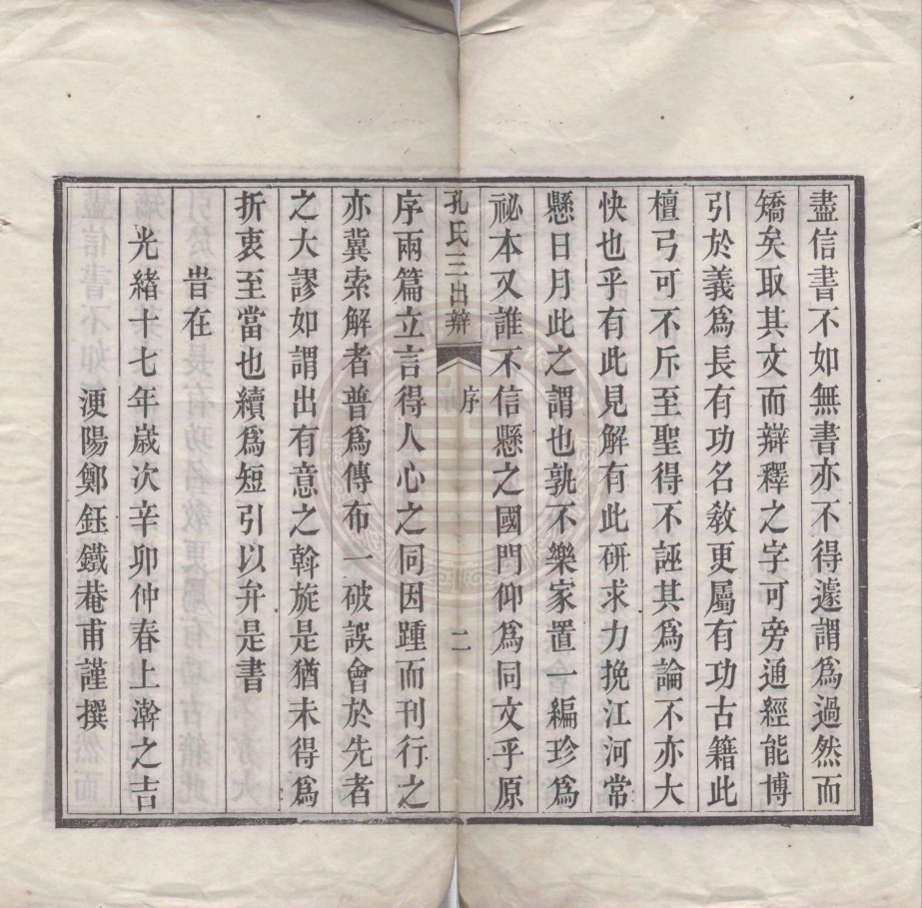 盡信書不如無書亦不得遽謂爲過然而
矯矣取其文而辯釋之字可旁通經能博
引於義爲長有功名教更屬有功古籍此
檀弓可不斥至聖得不誣其爲論不亦大
快也乎有此見解有此研求力挽江河常
懸日月此之謂也孰不樂家置一編珍爲
祕本又誰不信懸之國門仰爲同文乎原
孔氏三出辯
序
二
序兩篇立言得人心之同因踵而刊行之
亦冀索解者普爲傳布一破誤會於先者
之大謬如謂出有意之斡旋是猶未得爲
折衷至當也續爲短引以弁是書
昔在
光緒十七年歲次辛卯仲春上澣之吉
浭陽鄭鈺鐵菴甫謹撰